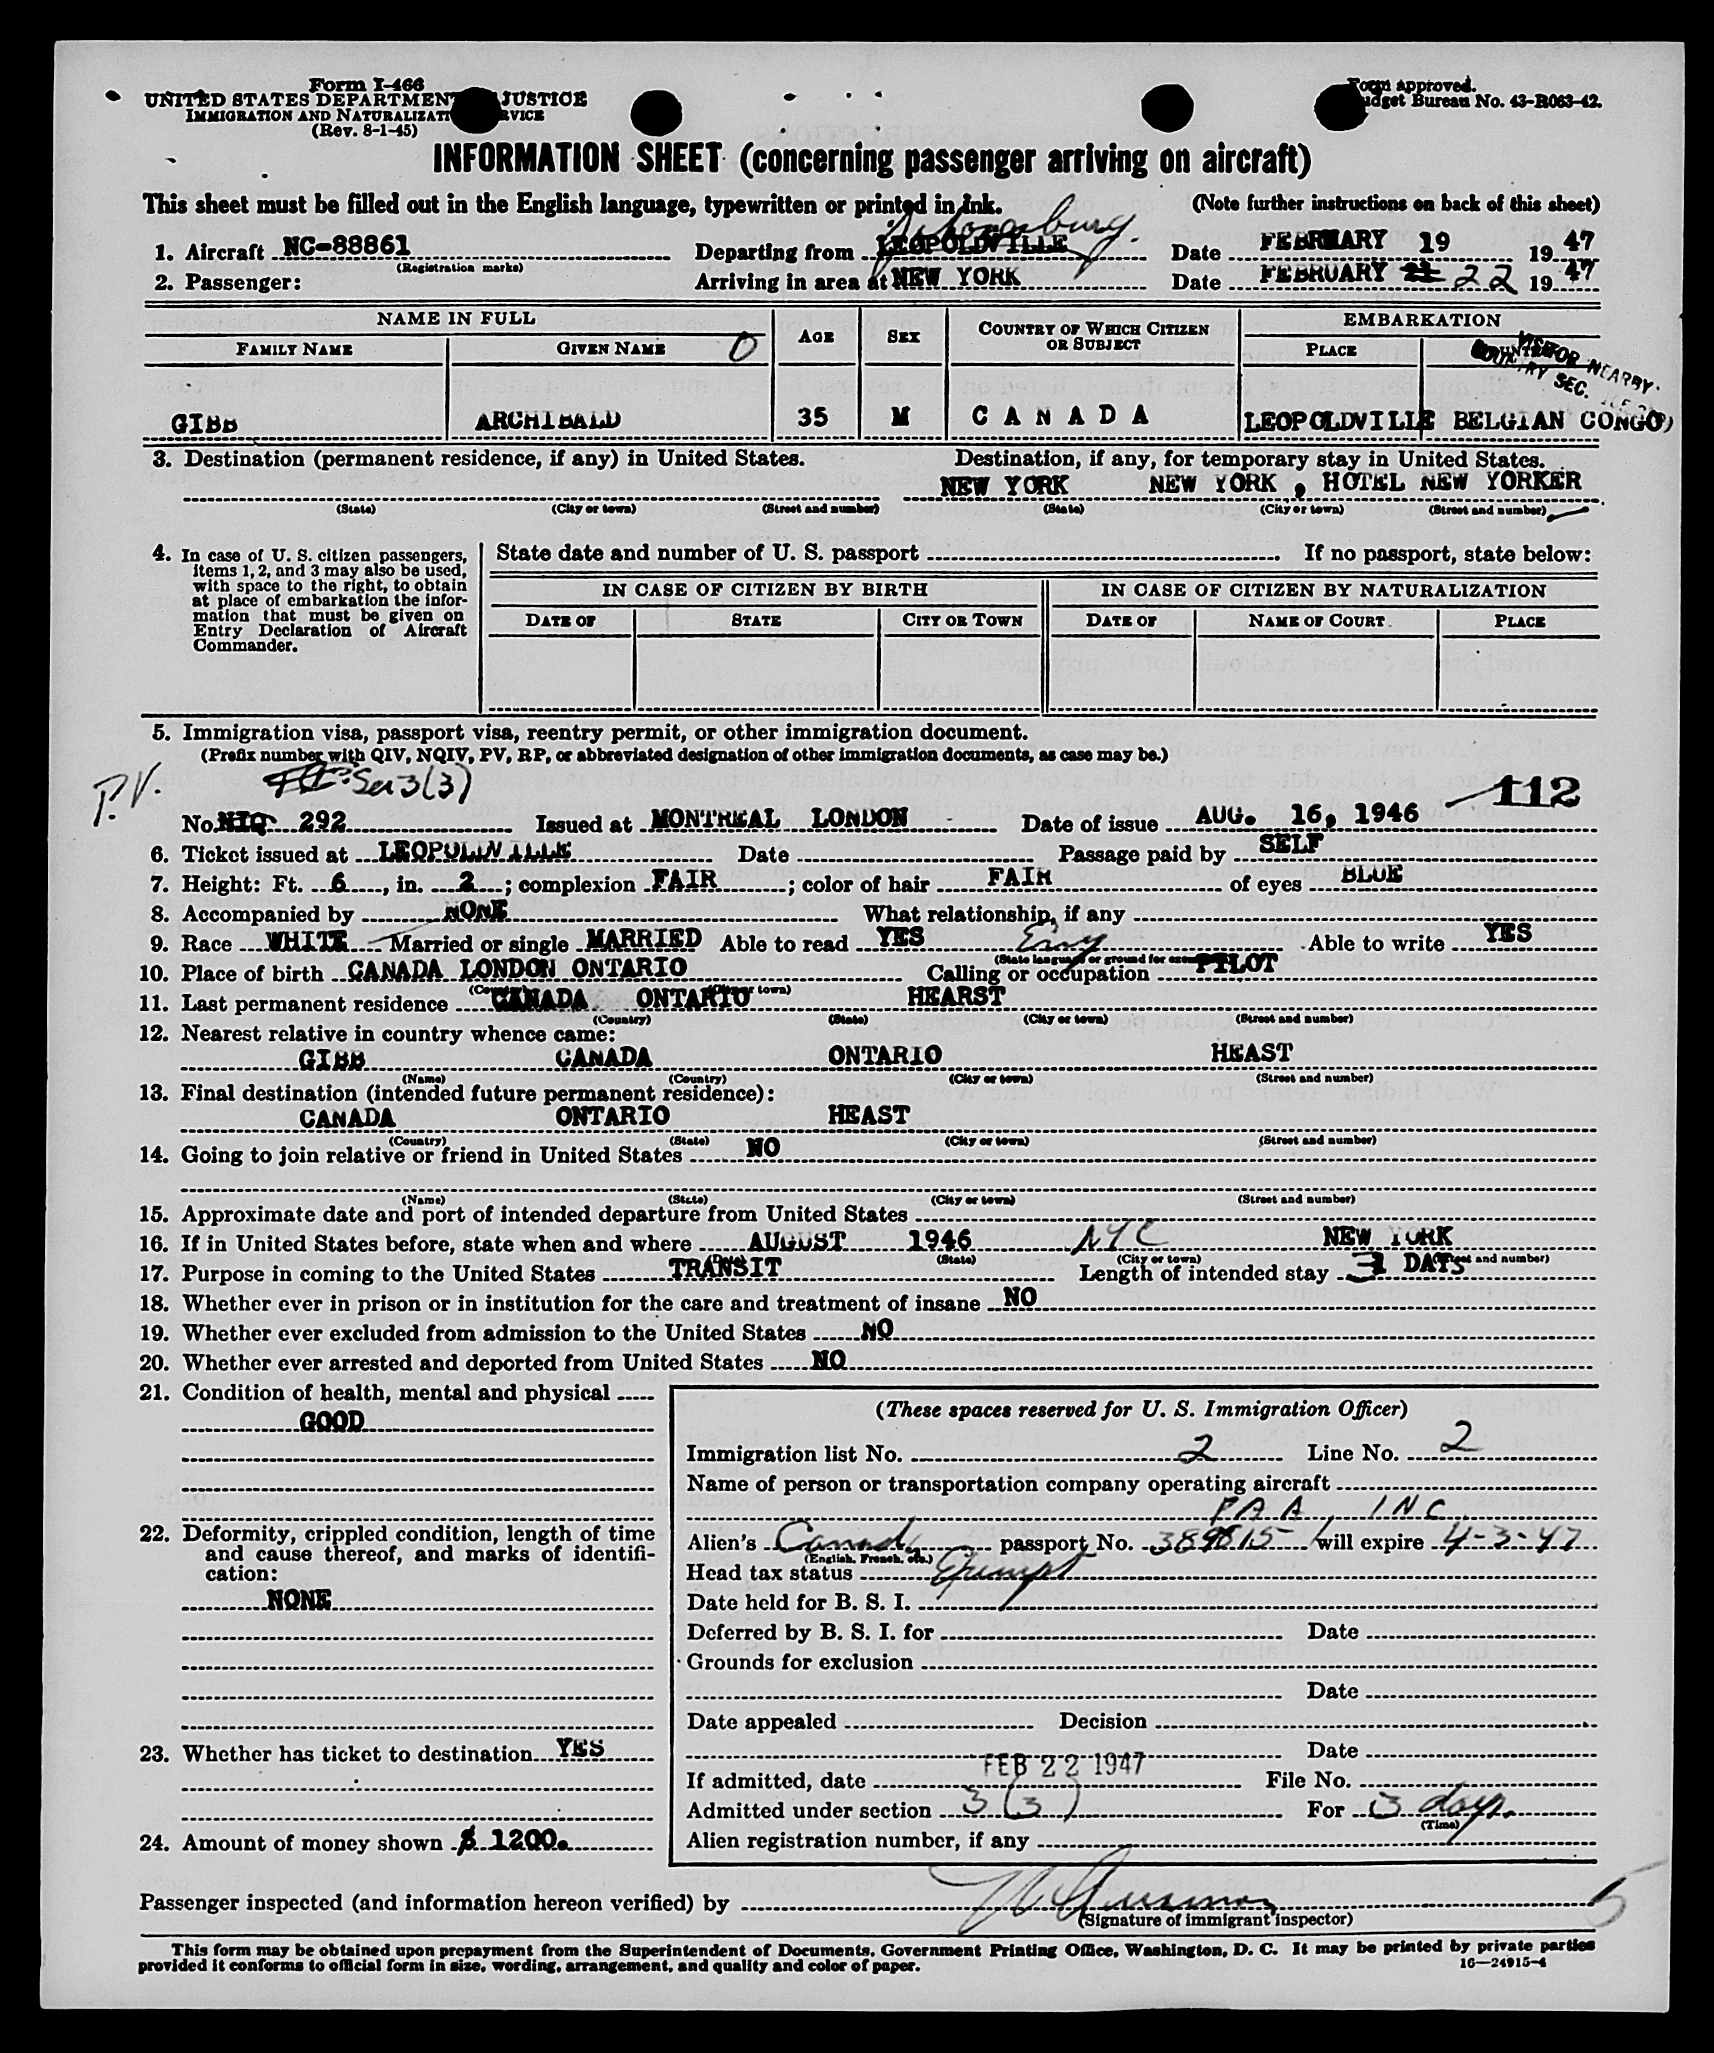 Form I-466
UNITED STATES DEPARTMENT JUSTICE
IMMIGRATION AND NATURALIZATI RVICE
(Rev. 8-1-45)
Form approved.
udget Bureau No. 43-R063-42.
INFORMATION SHEET (concerning passenger arriving on aircraft)
This sheet must be filled out in the English language, typewritten or printed in ink. (Note further instructions on back of this sheet)
1. Aircraft NC-88861 Departing from LEOPOLDVILLE Date FEBRUARY 19 1947
(Registration marks)
2. Passenger: Arriving in area at NEW YORK Date FEBRUARY 22 1947
NAME IN FULL AGE SEX COUNTRY OF WHICH CITIZEN OR SUBJECT EMBARKATION
FAMILY NAME GIVEN NAME O PLACE
VISITOR NEARBY
COUNTRY SEC.
GIBB ARCHIBALD 35 M CANADA LEOPOLDVILLE BELGIAN CONGO
3. Destination (permanent residence, if any) in United States. Destination, if any, for temporary stay in United States.
NEW YORK NEW YORK, HOTEL NEW YORKER
(State) (City or town) (Street and number) (State) (City or town) (Street and number)
4. In case of U. S. citizen passengers, items 1, 2, and 3 may also be used, with space to the right, to obtain at place of embarkation the information that must be given on Entry Declaration of Aircraft Commander.
State date and number of U. S. passport If no passport, state below:
IN CASE OF CITIZEN BY BIRTH IN CASE OF CITIZEN BY NATURALIZATION
DATE OF STATE CITY OR TOWN DATE OF NAME OF COURT PLACE
5. Immigration visa, passport visa, reentry permit, or other immigration document.
(Prefix number with QIV, NQIV, PV, RP, or abbreviated designation of other immigration documents, as case may be.)
P.V. Sec 3(3) 112
No. NIQ 292 Issued at MONTREAL LONDON Date of issue AUG. 16, 1946
6. Ticket issued at LEOPOLDVILLE Date Passage paid by SELF
7. Height: Ft. 6, in. 2; complexion FAIR; color of hair FAIR of eyes BLUE
8. Accompanied by NONE What relationship, if any
9. Race WHITE Married or single MARRIED Able to read YES Eng Able to write YES
(State language or ground for exemption)
10. Place of birth CANADA LONDON ONTARIO Calling or occupation PILOT
(Country) (City or town)
11. Last permanent residence CANADA ONTARIO HEARST
(Country) (State) (City or town) (Street and number)
12. Nearest relative in country whence came:
GIBB CANADA ONTARIO HEAST
(Name) (Country) (City or town) (Street and number)
13. Final destination (intended future permanent residence):
CANADA ONTARIO HEAST
(Country) (State) (City or town) (Street and number)
14. Going to join relative or friend in United States NO
(Name) (State) (City or town) (Street and number)
15. Approximate date and port of intended departure from United States
16. If in United States before, state when and where AUGUST 1946 NYC NEW YORK
(Date) (State) (City or town) (Street and number)
17. Purpose in coming to the United States TRANSIT Length of intended stay 3 DAYS
18. Whether ever in prison or in institution for the care and treatment of insane NO
19. Whether ever excluded from admission to the United States NO
20. Whether ever arrested and deported from United States NO
21. Condition of health, mental and physical
GOOD
22. Deformity, crippled condition, length of time
and cause thereof, and marks of identifi-
cation:
NONE
23. Whether has ticket to destination YES
24. Amount of money shown $ 1200.
(These spaces reserved for U. S. Immigration Officer)
Immigration list No. 2 Line No. 2
Name of person or transportation company operating aircraft
PAA INC
Alien's Canada passport No. will expire 4-3-47
(English, French, etc.)
Head tax status Exempt
Date held for B. S. I.
Deferred by B. S. I. for Date
Grounds for exclusion
Date
Date appealed Decision
Date
If admitted, date FEB 22 1947 File No.
Admitted under section 3(3) For 3 days.
(Time)
Alien registration number, if any
Passenger inspected (and information hereon verified) by
(Signature of immigrant inspector)
This form may be obtained upon prepayment from the Superintendent of Documents, Government Printing Office, Washington, D. C. It may be printed by private parties
provided it conforms to official form in size, wording, arrangement, and quality and color of paper.
16—24915-4